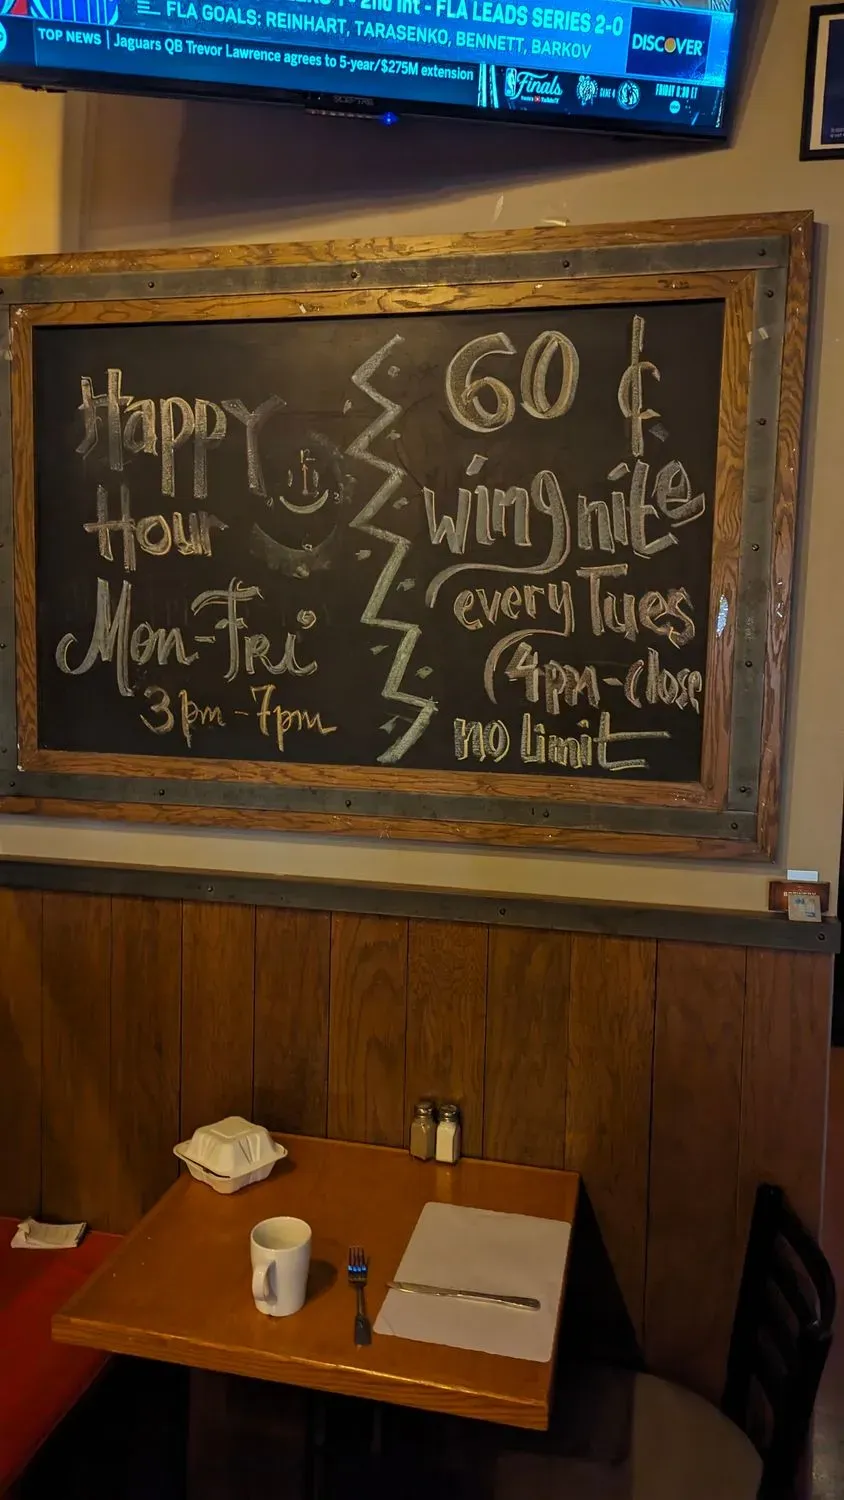 2nd Int - FLA LEADS SERIES 2-0
FLA GOALS: REINHART, TARASENKO, BENNETT, BARKOV
DISCOVER
TOP NEWS | Jaguars QB Trevor Lawrence agrees to 5-year/$275M extension
Finals
GAME 4
FRIDAY 8:30 ET
abc
SCEPTRE
Happy
Hour
Mon-Fri
3pm-7pm
60 ¢
wing nite
every Tues
4pm-close
no Limit